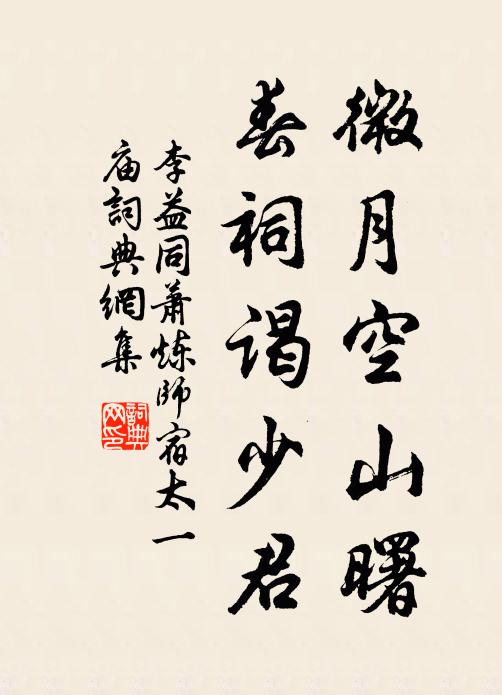 微月空山曙
春祠谒少君
李益同萧炼師宿太一
庙詞典網集
詞典网印